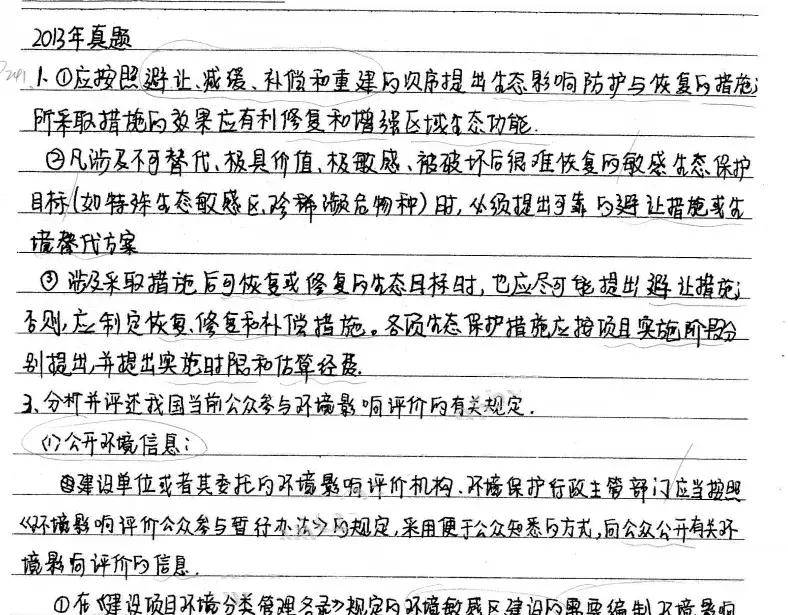 2013年真题
1、①应按照避让、减缓、补偿和重建的次序提出生态影响防护与恢复的措施;
所采取措施的效果应有利修复和增强区域生态功能.
②凡涉及不可替代、极具价值、极敏感、被破坏后很难恢复的敏感生态保护
目标(如特殊生态敏感区、珍稀濒危物种)时,必须提出可靠的避让措施或生
境替代方案
③涉及采取措施后可恢复或修复的生态目标时,也应尽可能提出避让措施;
否则,应制定恢复、修复和补偿措施。各项生态保护措施应按项目实施阶段分
别提出,并提出实施时限和估算经费.
3、分析并评述我国当前公众参与环境影响评价的有关规定.
(1)公开环境信息:
建设单位或者其委托的环境影响评价机构、环境保护行政主管部门应当按照
《环境影响评价公众参与暂行办法》的规定,采用便于公众知悉的方式,向公众公开有关环
境影响评价的信息.
①在《建设项目环境分类管理名录》规定的环境敏感区建设的需要编制环境影响